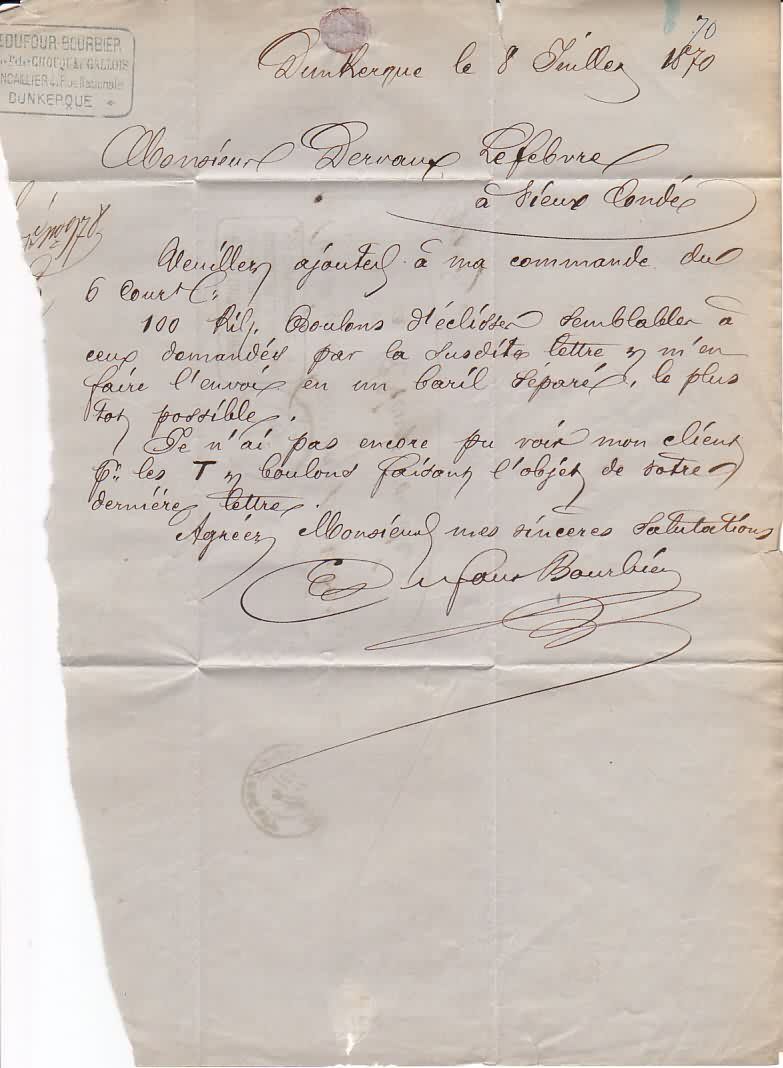 DUFOUR-BOURBIER
DUNKERQUE
70
Dunkerque le 8 Juillet 1870
Monsieur Dervaux Lefebvre
à Vieux Condé
Veuillez ajouter à ma commande du
6 Court
100 Kil. Boulons d'éclisses semblables à
ceux demandés par la susdite lettre & m'en
faire l'envoi en un baril séparé, le plus
tot possible.
Je n'ai pas encore pu voir mon client
Pr les T & boulons faisant l'objet de votre
dernière lettre.
Agréez Monsieur mes sincères salutations
Dufour Bourbier